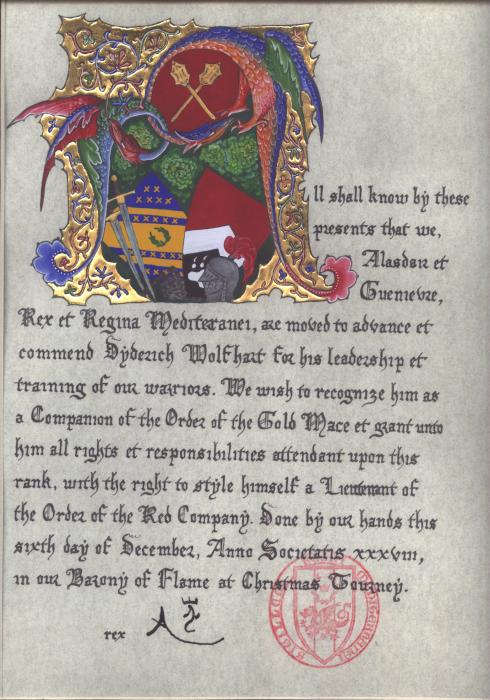 All shall know by these
presents that we,
Alasdair et
Guenievre,
Rex et Regina Mediterranei, are moved to advance et
commend Dyderich Wolfhart for his leadership et
training of our warriors. We wish to recognize him as
a Companion of the Order of the Gold Mace et grant unto
him all rights et responsibilities attendant upon this
rank, with the right to style himself a Lieutenant of
the Order of the Red Company. Done by our hands this
sixth day of December, Anno Societatis xxxviii,
in our Barony of Flame at Christmas Tourney.
rex